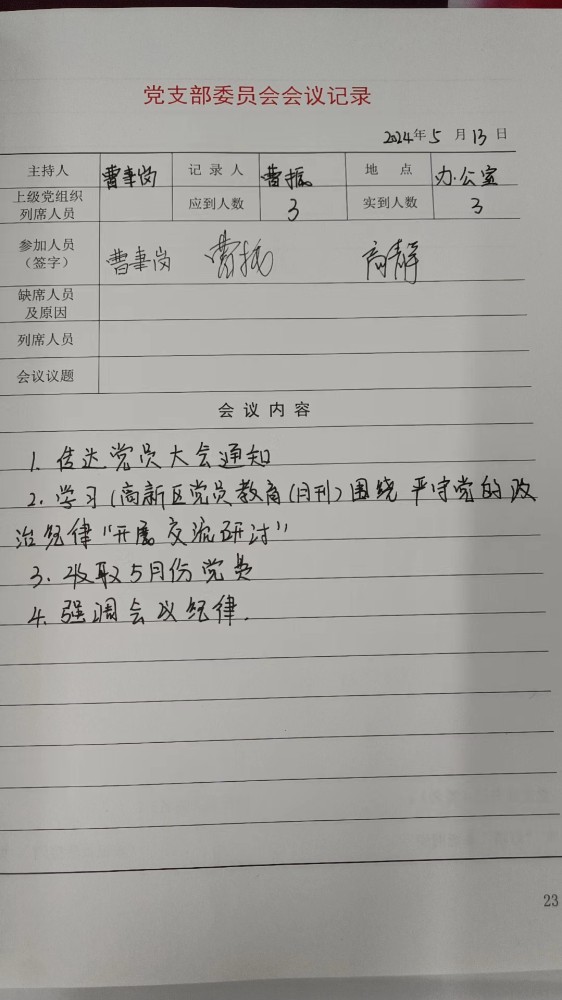 党支部委员会会议记录
2024年5月13日
主持人 曹聿岗 记录人 曹振 地点 办公室
上级党组织
列席人员 应到人数 3 实到人数 3
参加人员
（签字） 曹聿岗 曹振 高静
缺席人员
及原因
列席人员
会议议题
会议内容
1. 传达党员大会通知
2. 学习（高新区党员教育（月刊）围绕 严守党的政
治纪律“开展交流研讨”
3. 收取5月份党费
4. 强调会议纪律.
23